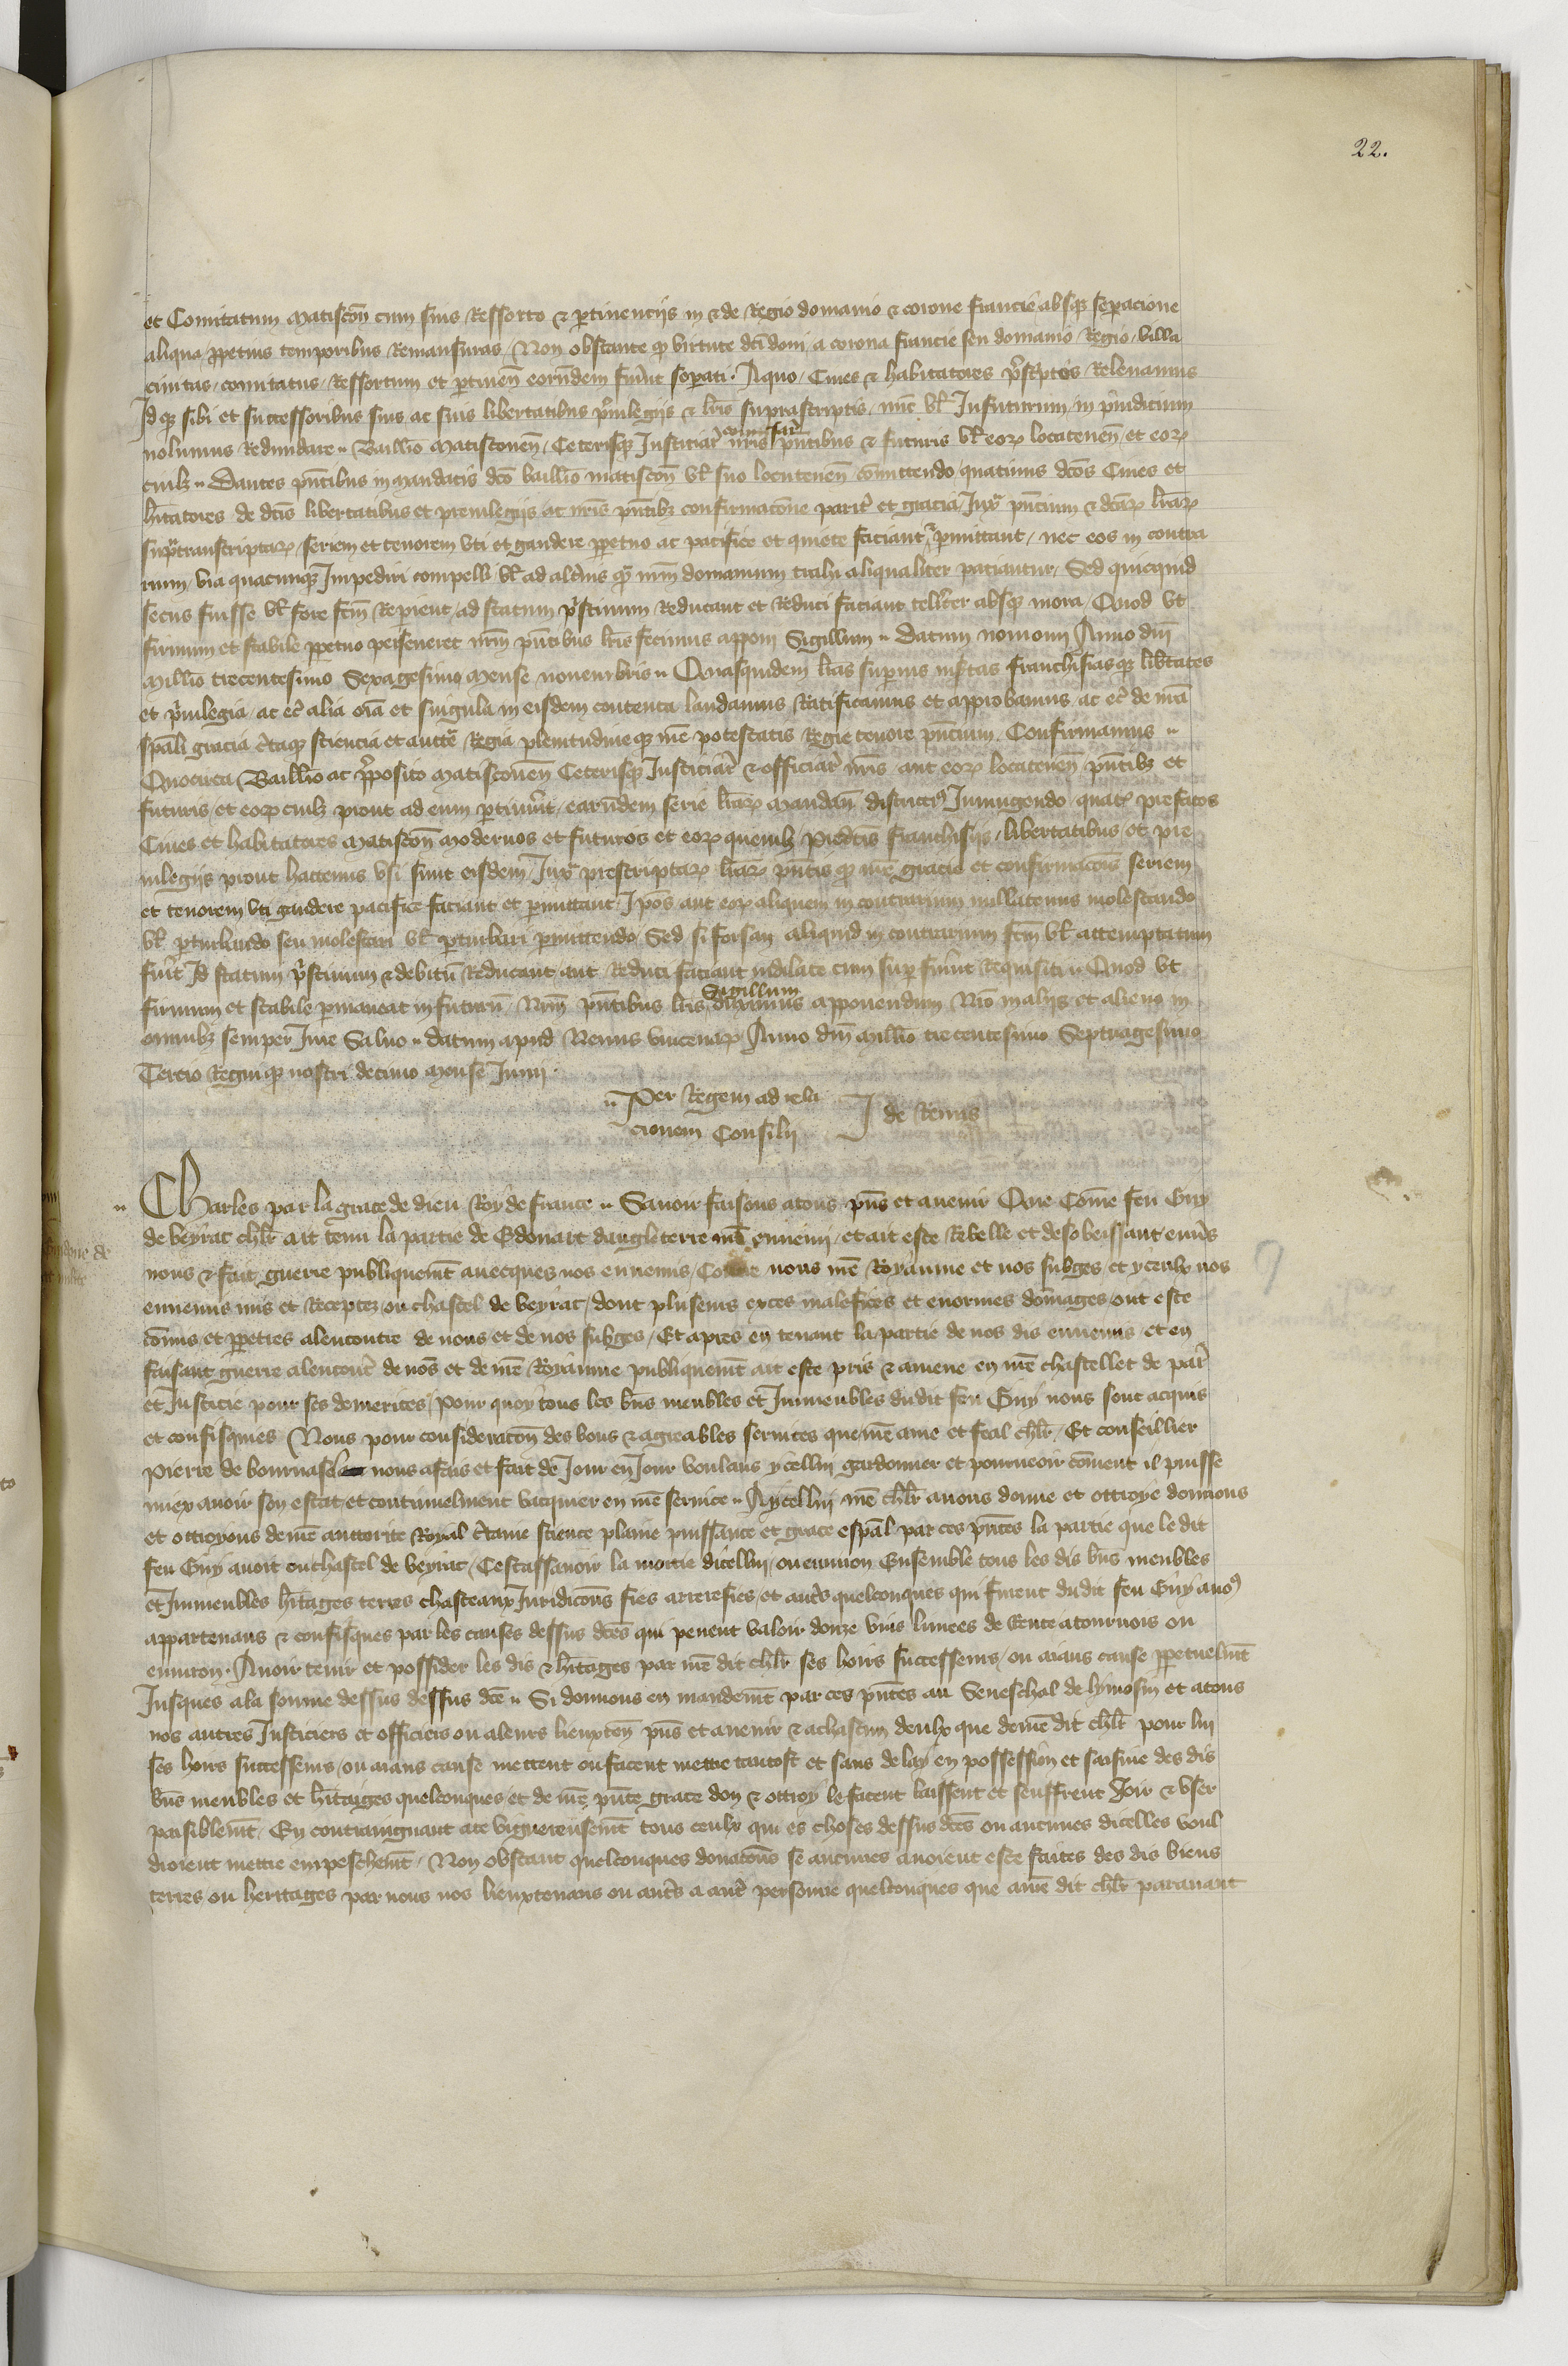 22.
et Comitatum Matiscoñ cum suis Ressorto & ptinencijs in & de Regio domanio & corone francie absqꝫ sepacione
aliqua ppetuis temporibus Remansuras / Non obstante qꝫ virtute dc̃i doni a corona francie seu domanio Regio / villa
ciuitas / comitatus / Ressortum et ptineñ eorundem fuer̃nt sepati . A quo / Ciues & habitatores p̃scp̃tos Releuamus
Id qꝫ sibi et successoribus suis ac suis libertatibus p̃uilegijs & lr̃is suprascriptis / nũc vl̃ Infuturum in p̃iudicium
nolumus Redundare .. Bailliõ Matisconeñ / Ceterisqꝫ Iusticiar̃ nr̃is commissar̃ pñtibus & futuris vl̃ eoꝝ locateneñ / et eoꝝ
cuilꝫ .. Dantes pñtibus in mandatis dc̃o bailliõ matiscoñ vl̃ suo locuteneñ com̃ittendo / quatinus dc̃os Ciues et
hĩtatores de dc̃is libertatibus et preuilegijs ac nr̃is pñtibꝫ confirmacõne parit̃ et gracia Iux̃ pñcium & dc̃aꝝ lr̃aꝝ
sup̃transcriptaꝝ / seriem et tenorem vti et gaudere ppetuo ac pacifice et quiete faciant & pmittant / nec eos in contra
rium / via quacunqꝫ Impediri compelli vl̃ ad alt̃ius qꝫ nr̃m domanium trahi aliqualiter paciantur / Sed quicquid
secus fuisse vl̃ fore fc̃m Reperient / ad statum p̃stinum Reducant et Reduci faciant celit̃er absqꝫ mora / Quod vt
firmum et stabile ppetuo perseueret nr̃m pñtibus lr̃is fecimus apponi Sigillum .. Datum nomoni Anno dñi
Millõ trecentesimo Sexagesimo Mense nouembris .. Quasquidem lr̃as supius insr̃tas franchisiasqꝫ lib̃tates
et p̃uilegia / ac ec̃ alia oĩa et singula in eisdem contenta laudamus Ratificamus et approbamus / ac ec̃ de nr̃a
spãli gracia c̃taqꝫ sciencia et auct̃e Regia plenitudineqꝫ nr̃e potestatis Regie tenore pñcium Confirmamus ..
Quocirca Bailliõ ac p̃posito Matisconeñ Ceterisqꝫ Iusticiar̃ & officiar̃ nr̃is / aut eoꝝ locateneñ pñtibꝫ et
futuris / et eoꝝ cuilꝫ prout ad eum ptinuerit / earũdem serie lr̃aꝝ Mandam̃ districtiꝰ Iniungendo / quatꝰ prefatos
Ciues et habitatores Matiscoñ Modernos et futuros et eoꝝ quemlꝫ predc̃is franchisijs / libertatibus et pre
uilegijs prout hactenus vsi sunt eisdem / Iux̃ prescriptaꝝ lr̃aꝝ pñtis qꝫ nr̃e gracie et confirmacõis seriem
et tenorem vti gaudere pacifice faciant et pmittant / Ip̃os aut eoꝝ aliquem in contrarium nullatenus molestando
vl̃ pturbando seu molestari vl̃ pturbari pmittendo / Sed si forsan aliquid in contrarium fc̃m vl̃ attemptatum
fuer̃it Id statum p̃stinum & debitũ Reducant aut Reduci faciant indilate cum sup fuer̃int Requisiti .. Quod vt
firmum et stabile pmaneat in futurũ / Nr̃m pñtibus lr̃is duximus Sigillum apponendum Nr̃o in alijs et alieno in
omnibꝫ semper Iure Saluo .. datum apud Nemus vincenaꝝ Anno dñi Millõ trecentesimo Septuagesimo
Tercio Regni qꝫ nostri decimo Mense Iunij .
.. Per Regem ad rela
cionem Consilij J de Remis
.. Charles par la grace de dieu Roy de france .. Sauoir faisons a tous pñs et auenir Que Com̃e feu Guy
de beyrac chlr̃ ait tenu la partie de Edouart dangleterre nr̃e ennemi / et ait este Rebelle et desobeissant enuẽs
nous & fait guerre publiquemt̃ auecques nos ennemis / Contre nous nr̃e Royaume et nos subges / et yceulx nos
ennemis mis et Receptez ou chastel de beyrac / dont pluseurs exces malefices et enormes dom̃ages ont este
com̃is et ppetres alencontre de nous et de nos subges / Et apres en tenant la partie de nos dis ennemis et en
faisant guerre alencont̃ de noꝰ et de nr̃e Royaume publiquemt̃ ait este pris & amene en nr̃e chastellet de par̃
et Iusticie pour ses demerites / pour quoy tous les bñs meubles et Inmeubles dudit feu Guy nous sont acquis
et confisques / Nous pour consideracõn des bons & agreables seruices que nr̃e ame et feal chlr̃ / Et conseillier
pierre de bournasel nous a fais et fait de Iour en Iour voulans ycellui guerdonner et pourueoir com̃ent il puisse
miex auoir son estat et continuelment vacquier en nr̃e seruice .. A ycellui nr̃e chlr̃ auons donne et ottroye donnons
et ottroyons de nr̃e auctorite Royal c̃taine science plaine puissance et grace esp̃al par ces pñtes la partie que le dit
feu Guy auoit ou chastel de beyrac / Cestassauoir la moitie dicellui / ou enuiron Ensemble tous les dis bñs meubles
et Inmeubles hr̃itages terres chasteaux Iuridicõns fiez arrerefiez / et autr̃es quelconques qui furent dudit feu Guy a noꝰ
appartenans & confisques par les causes dessus dc̃es qui peuent valoir douze vins liurees de Rente a tournois ou
enuiron . A auoir tenir et possider les dis & hr̃itages par nr̃e dit chlr̃ ses hoirs successeurs / ou aians cause ppetuelmt̃
Iusques a la som̃e dessus dessus dc̃e .. Si donnons en mandemt̃ par ces pñtes au Seneschal de lymosin et a tous
nos autres Iusticiers et officiers ou a leurs lieuxteñ pñs et auenir & a chascun deulx que de nr̃e dit chlr̃ pour lui
ses hoirs successeurs / ou aians cause mettent ou facent mettre tantost et sans delay en possession et saisine des dis
bñs meubles et hr̃itaiges quelconques et de nr̃e pñte grace don & ottroy le facent laissent et seuffrent Ioir & vser
paisiblemt̃ / En contraingnant a ce viguereusemt̃ tous ceulx qui es choses dessus dc̃es ou aucunes dicelles voul
droient mettre empeschemt̃ / Non obstant quelconques donacõns se aucunes auoient este faites des dis biens
terres ou heritages par nous nos lieuxtenans ou autr̃es a autr̃e personne quelconques que a nr̃e dit chlr̃ parauant